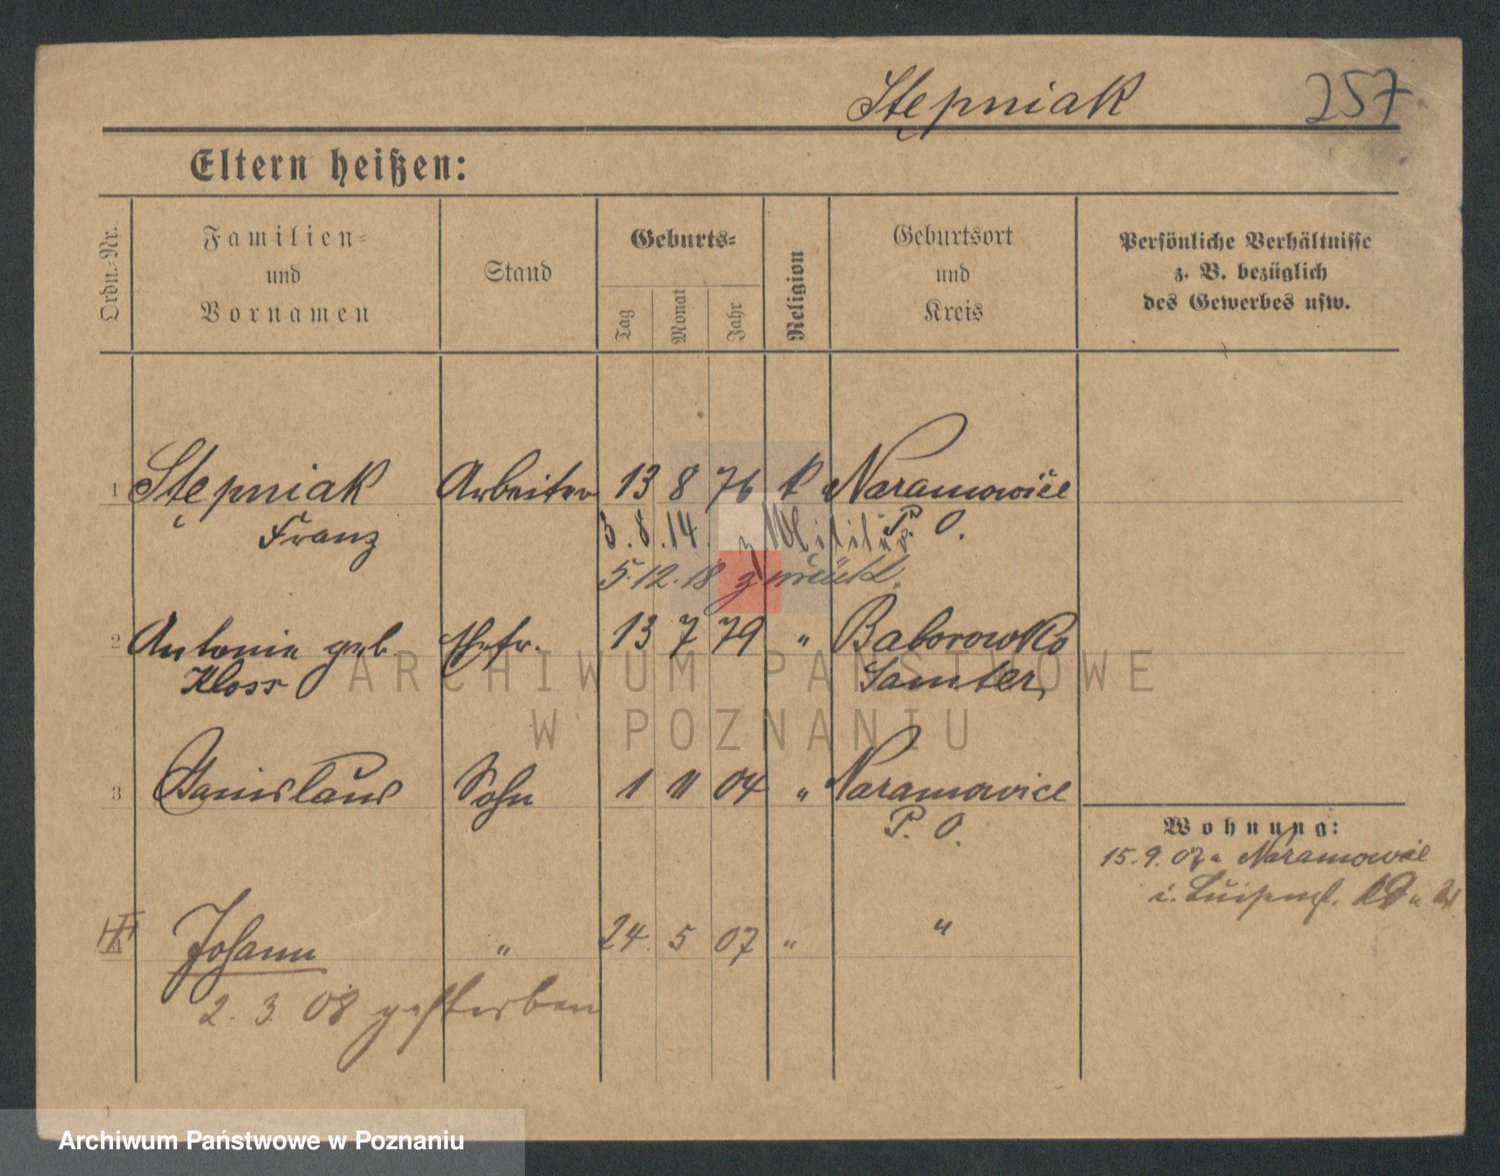 Stępniak 257
Eltern heißen:
Ordn.-Nr.
Familien-
und
Vornamen
Stand
Geburts-
Tag
Monat
Jahr
Religion
Geburtsort
und
Kreis
Persönliche Verhältnisse
z. B. bezüglich
des Gewerbes usw.
1 Stępniak Arbeiter 13 8 76 k Naramowice
Franz 3.8.14. z Militär. P. O.
5.12.18 zurück.
2 Antonie geb. Ehefr. 13 7 79 " Baborowko
Kloss Samter
3 Stanislaus Sohn 1 11 04 " Naramowice
P. O.
Wohnung:
15.9.07 Naramowice
i.
Johann " 24 5 07 " "
2. 3. 08 gestorben
ARCHIWUM PAŃSTWOWE
W POZNANIU
Archiwum Państwowe w Poznaniu